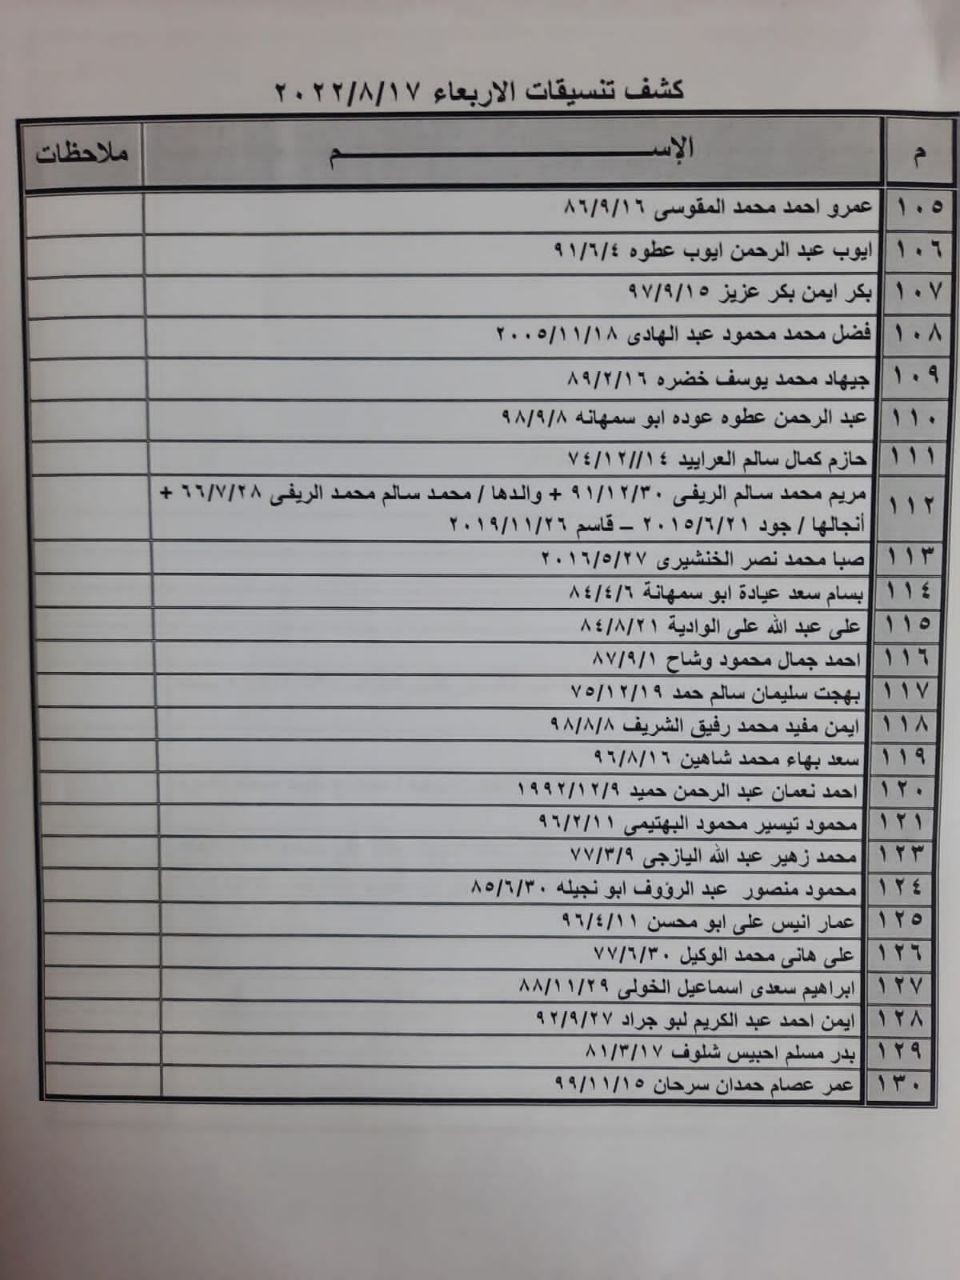 كشف تنسيقات الاربعاء ٢٠٢٢/٨/١٧
م الإســــــم ملاحظات
١٠٥ عمرو احمد محمد المقوسى ٨٦/٩/١٦
١٠٦ ايوب عبد الرحمن ايوب عطوه ٩١/٦/٤
١٠٧ بكر ايمن بكر عزيز ٩٧/٩/١٥
١٠٨ فضل محمد محمود عبد الهادى ٢٠٠٥/١١/١٨
١٠٩ جيهاد محمد يوسف خضره ٨٩/٢/١٦
١١٠ عبد الرحمن عطوه عوده ابو سمهانه ٩٨/٩/٨
١١١ حازم كمال سالم العرابيد ٧٤/١٢//١٤
١١٢ مريم محمد سالم الريفى ٩١/١٢/٣٠ + والدها / محمد سالم محمد الريفى ٦٦/٧/٢٨ +
أنجالها / جود ٢٠١٥/٦/٢١ – قاسم ٢٠١٩/١١/٢٦
١١٣ صبا محمد نصر الخنشيرى ٢٠١٦/٥/٢٧
١١٤ بسام سعد عيادة ابو سمهانة ٨٤/٤/٦
١١٥ على عبد الله على الوادية ٨٤/٨/٢١
١١٦ احمد جمال محمود وشاح ٨٧/٩/١
١١٧ بهجت سليمان سالم حمد ٧٥/١٢/١٩
١١٨ ايمن مفيد محمد رفيق الشريف ٩٨/٨/٨
١١٩ سعد بهاء محمد شاهين ٩٦/٨/١٦
١٢٠ احمد نعمان عبد الرحمن حميد ١٩٩٢/١٢/٩
١٢١ محمود تيسير محمود البهتيمى ٩٦/٢/١١
١٢٣ محمد زهير عبد الله اليازجى ٧٧/٣/٩
١٢٤ محمود منصور عبد الرؤوف ابو نجيله ٨٥/٦/٣٠
١٢٥ عمار انيس على ابو محسن ٩٦/٤/١١
١٢٦ على هانى محمد الوكيل ٧٧/٦/٣٠
١٢٧ ابراهيم سعدى اسماعيل الخولى ٨٨/١١/٢٩
١٢٨ ايمن احمد عبد الكريم لبو جراد ٩٢/٩/٢٧
١٢٩ بدر مسلم احبيس شلوف ٨١/٣/١٧
١٣٠ عمر عصام حمدان سرحان ٩٩/١١/١٥